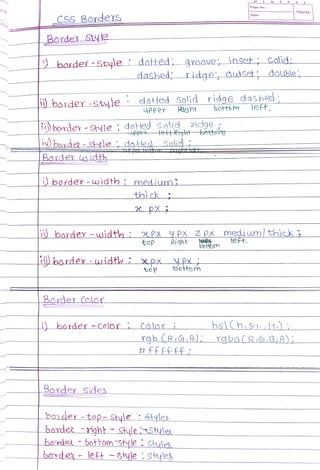 CSS Borders
Border Style
i) border-style : dotted; groove; inset; solid;
dashed; ridge; outset; double;
ii) border-style : dotted solid ridge dashed;
upper Right bottom left.
iii) border-style : dotted solid ridge;
upper left Right bottom
iv) border-style : dotted solid ;
Border width
i) border-width : medium;
thick ;
x px ;
ii) border-width : xpx ypx zpx medium/thick ;
top Right bottom left.
iii) border-width : xpx ypx ;
top bottom
Border Color
i) border-color : color ; hsl(h, s%, l%);
rgb (R,G,B); rgba(R,G,B,A);
# ffffff;
Border Sides
border-top-style : styles
border-right-style : styles
border-bottom-style : styles
border-left-style : styles